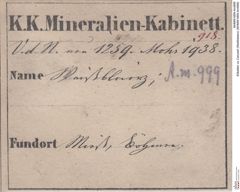 K.K. Mineralien-Kabinett.
918.
V.d.N. von 1259. Mohs 1938.
Name Weissbleierz; A.m. 999
Fundort Mies, Böhmen.